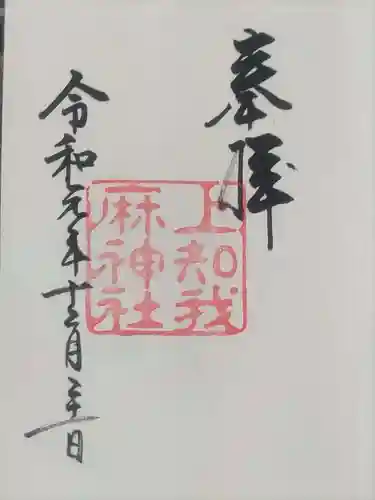 奉拝
上知我
麻神社
令和元年十二月二十一日